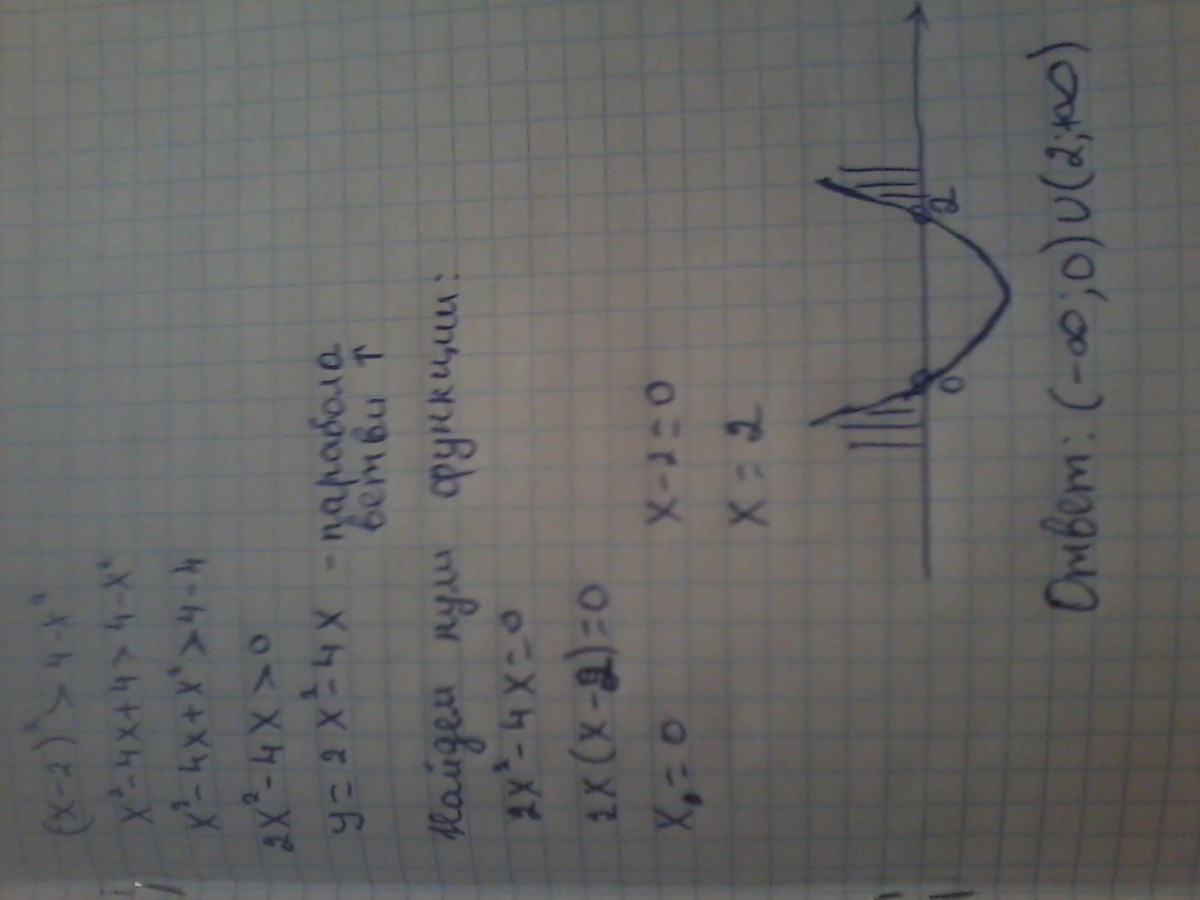 (x-2)²>4-x²
x²-4x+4>4-x²
x²-4x+x²>4-4
2x²-4x>0
y=2x²-4x - парабола
ветви ↑
Найдем нули функции:
2x²-4x=0
2x(x-2)=0
x₁=0 x-2=0
x=2
0 2
Ответ: (-∞;0)∪(2;+∞)